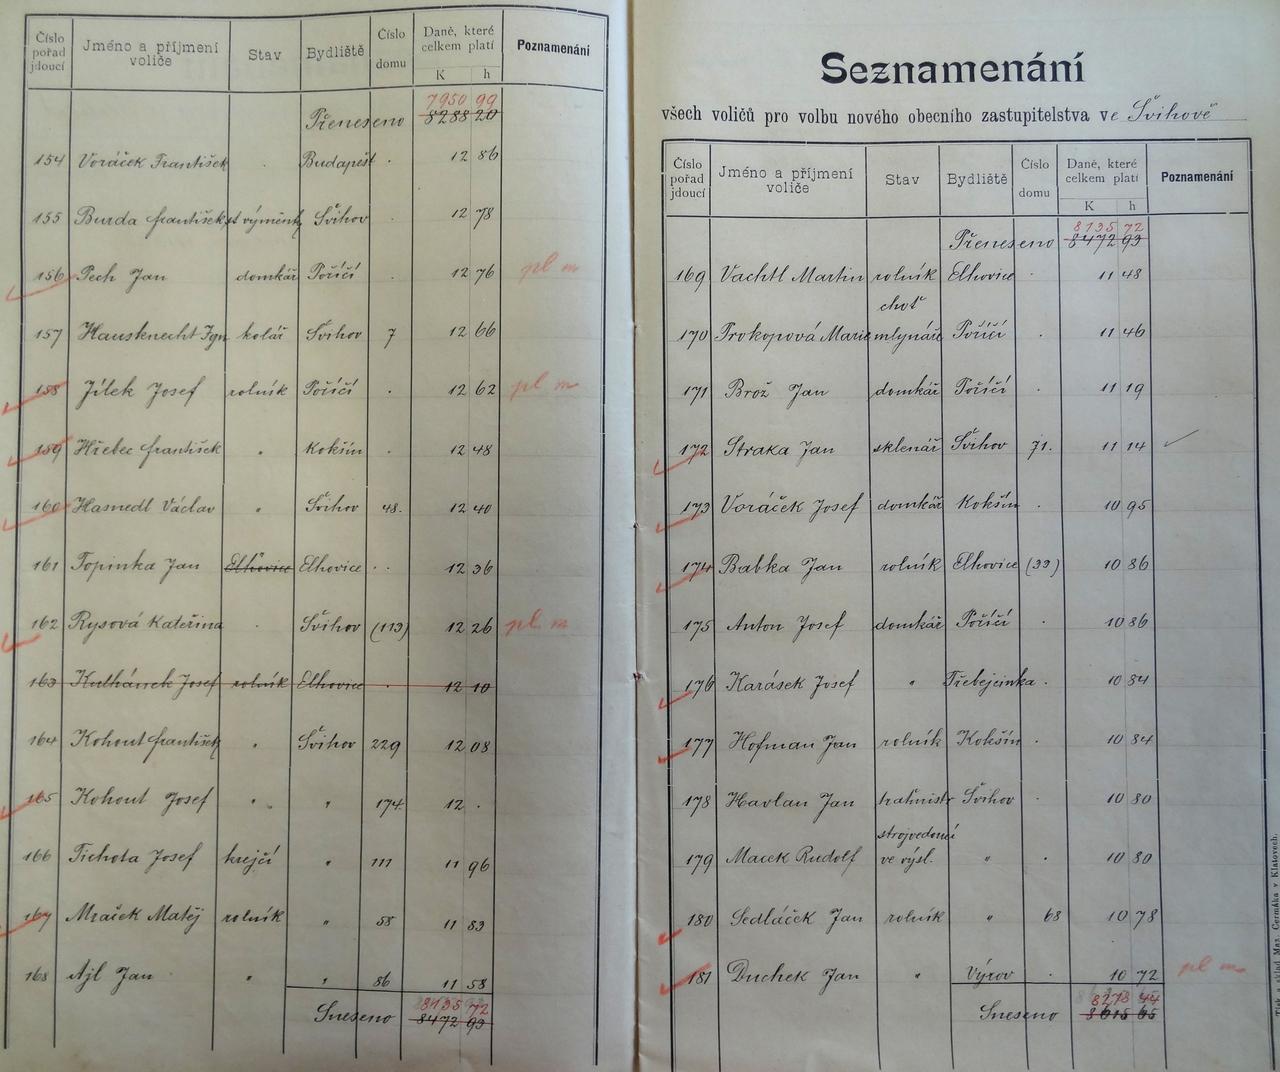 Číslo pořad jdoucí Jméno a příjmení voliče Stav Bydliště Číslo domu Daně, které celkem platí K h Poznamenání
7950 99
Přeneseno 8288 20
154 Voráček František . Budapešť . 12 86
155 Burda František st výměnk Švihov . 12 78
156 Pech Jan domkář Poříčí . 12 76 pl m
157 Hausknecht Ign kolář Švihov 7 12 66
158 Jílek Josef rolník Poříčí . 12 62 pl m
159 Hřebec František " Kokšín . 12 48
160 Hasmedl Václav " Švihov 48. 12 40
161 Topinka Jan Elhovice Elhovice . . 12 36
162 Rysová Kateřina . Švihov (113) 12 26 pl. m
163 Kulhánek Josef rolník Elhovice . 12 10
164 Kohout František " Švihov 229 12 08
165 Kohout Josef " " 174 12 .
166 Tichota Josef krejčí " 111 11 96
167 Mraček Matěj rolník " 58 11 83
168 Ajl Jan " " 86 11 58
8135 72
Sneseno 8472 93
Seznamenání
všech voličů pro volbu nového obecního zastupitelstva ve Švihově
Číslo pořad jdoucí Jméno a příjmení voliče Stav Bydliště Číslo domu Daně, které celkem platí K h Poznamenání
8135 72
Přeneseno 8472 93
169 Vachtl Martin rolník Elhovice . 11 48
choť
170 Prokopová Marie mlynáře Poříčí . 11 46
171 Brož Jan domkář Poříčí . 11 19
172 Straka Jan sklenář Švihov 71. 11 14
173 Voráček Josef domkář Kokšín . 10 95
174 Babka Jan rolník Elhovice (33) 10 86
175 Anton Josef domkář Poříčí . 10 86
176 Karásek Josef " Třebejcinka . 10 84
177 Hofman Jan rolník Kokšín . 10 84
178 Havlan Jan traťmistr Švihov . 10 80
strojvedoucí
179 Macek Rudolf ve výsl. " . 10 80
180 Sedláček Jan rolník " 68 10 78
181 Duchek Jan " Výrov . 10 72 pl m
8278 44
Sneseno 8615 65
Tisk a sklad Max. Čermáka v Klatovech.